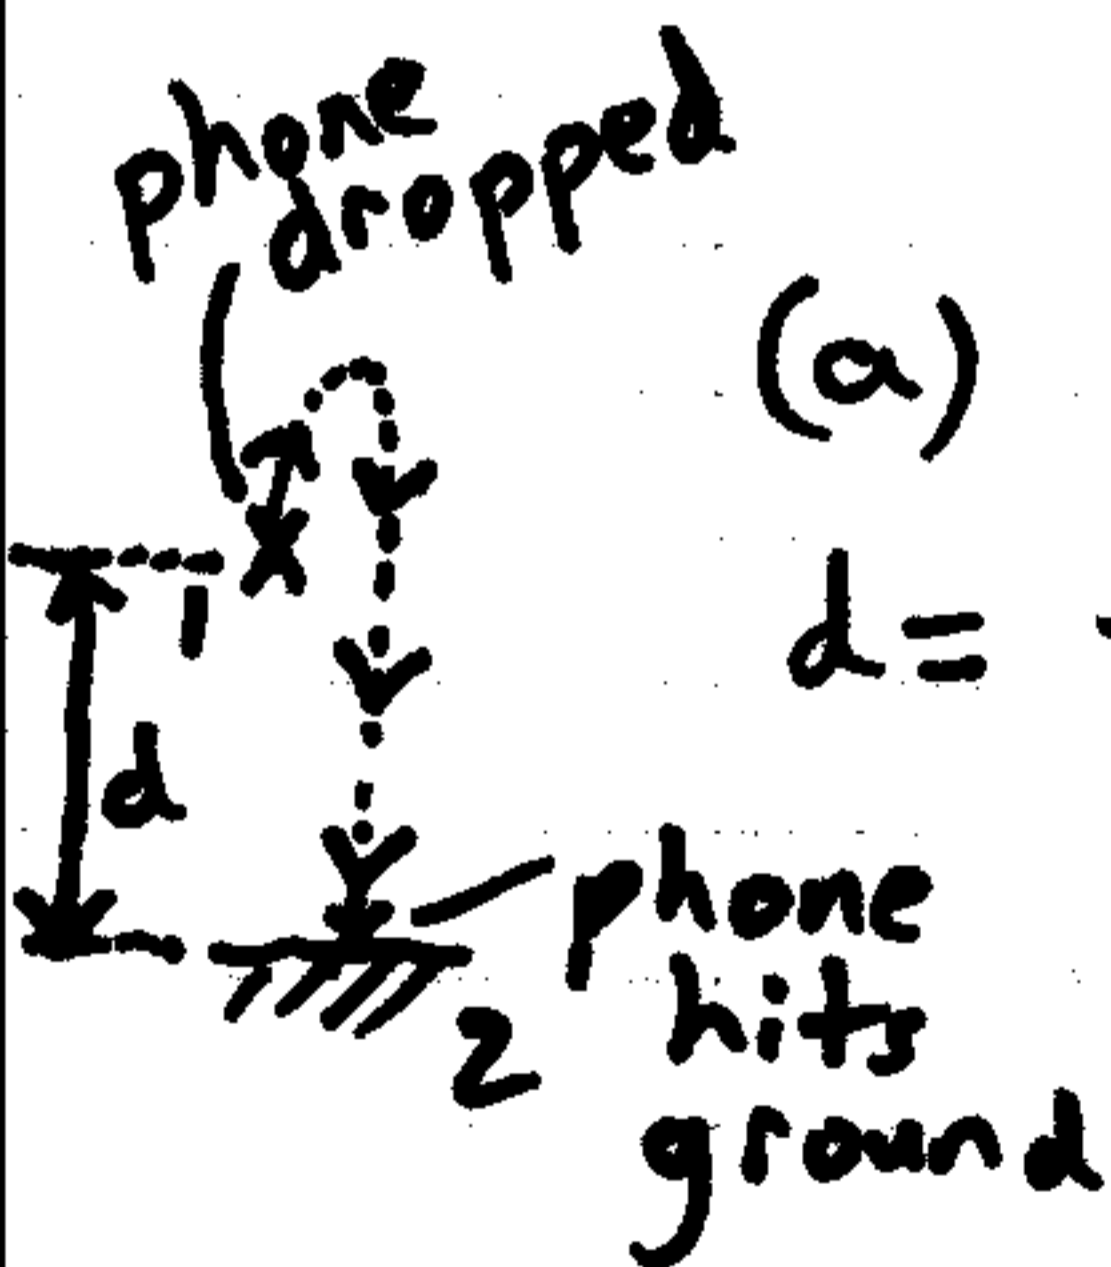 phone
dropped
(a)
1
d =
d
phone
hits
2
ground